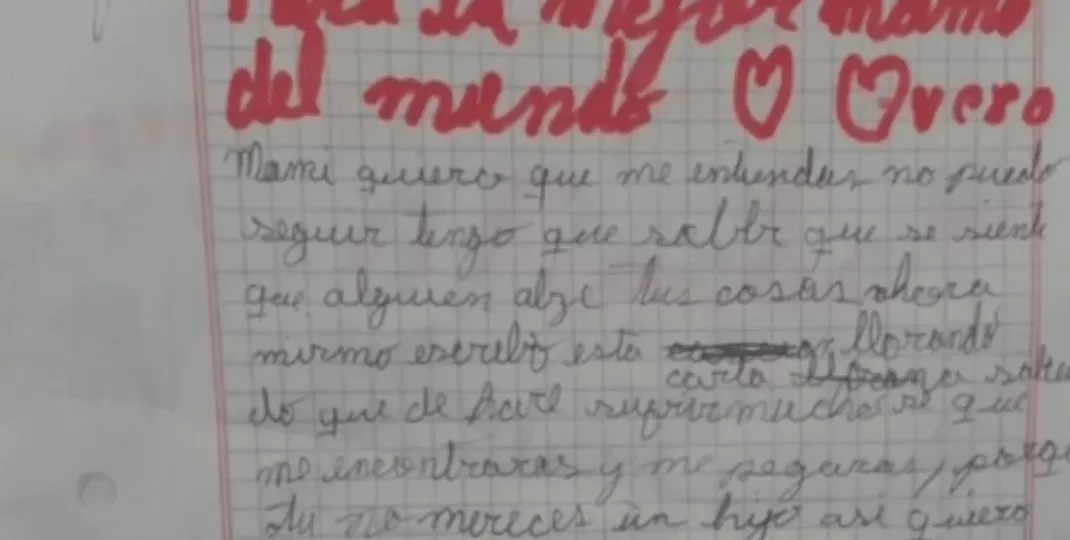 Para la mejor mamá
del mundo vero
Mami quiero que me entiendas no puedo
seguir tengo que saber que se siente
que alguien alze tus cosas ahora
mismo escribo esta llorando
carta
do que de hare sufrir mucho se que
me encontraras y me pegaras, porque
tu no mereces un hijo asi quiero